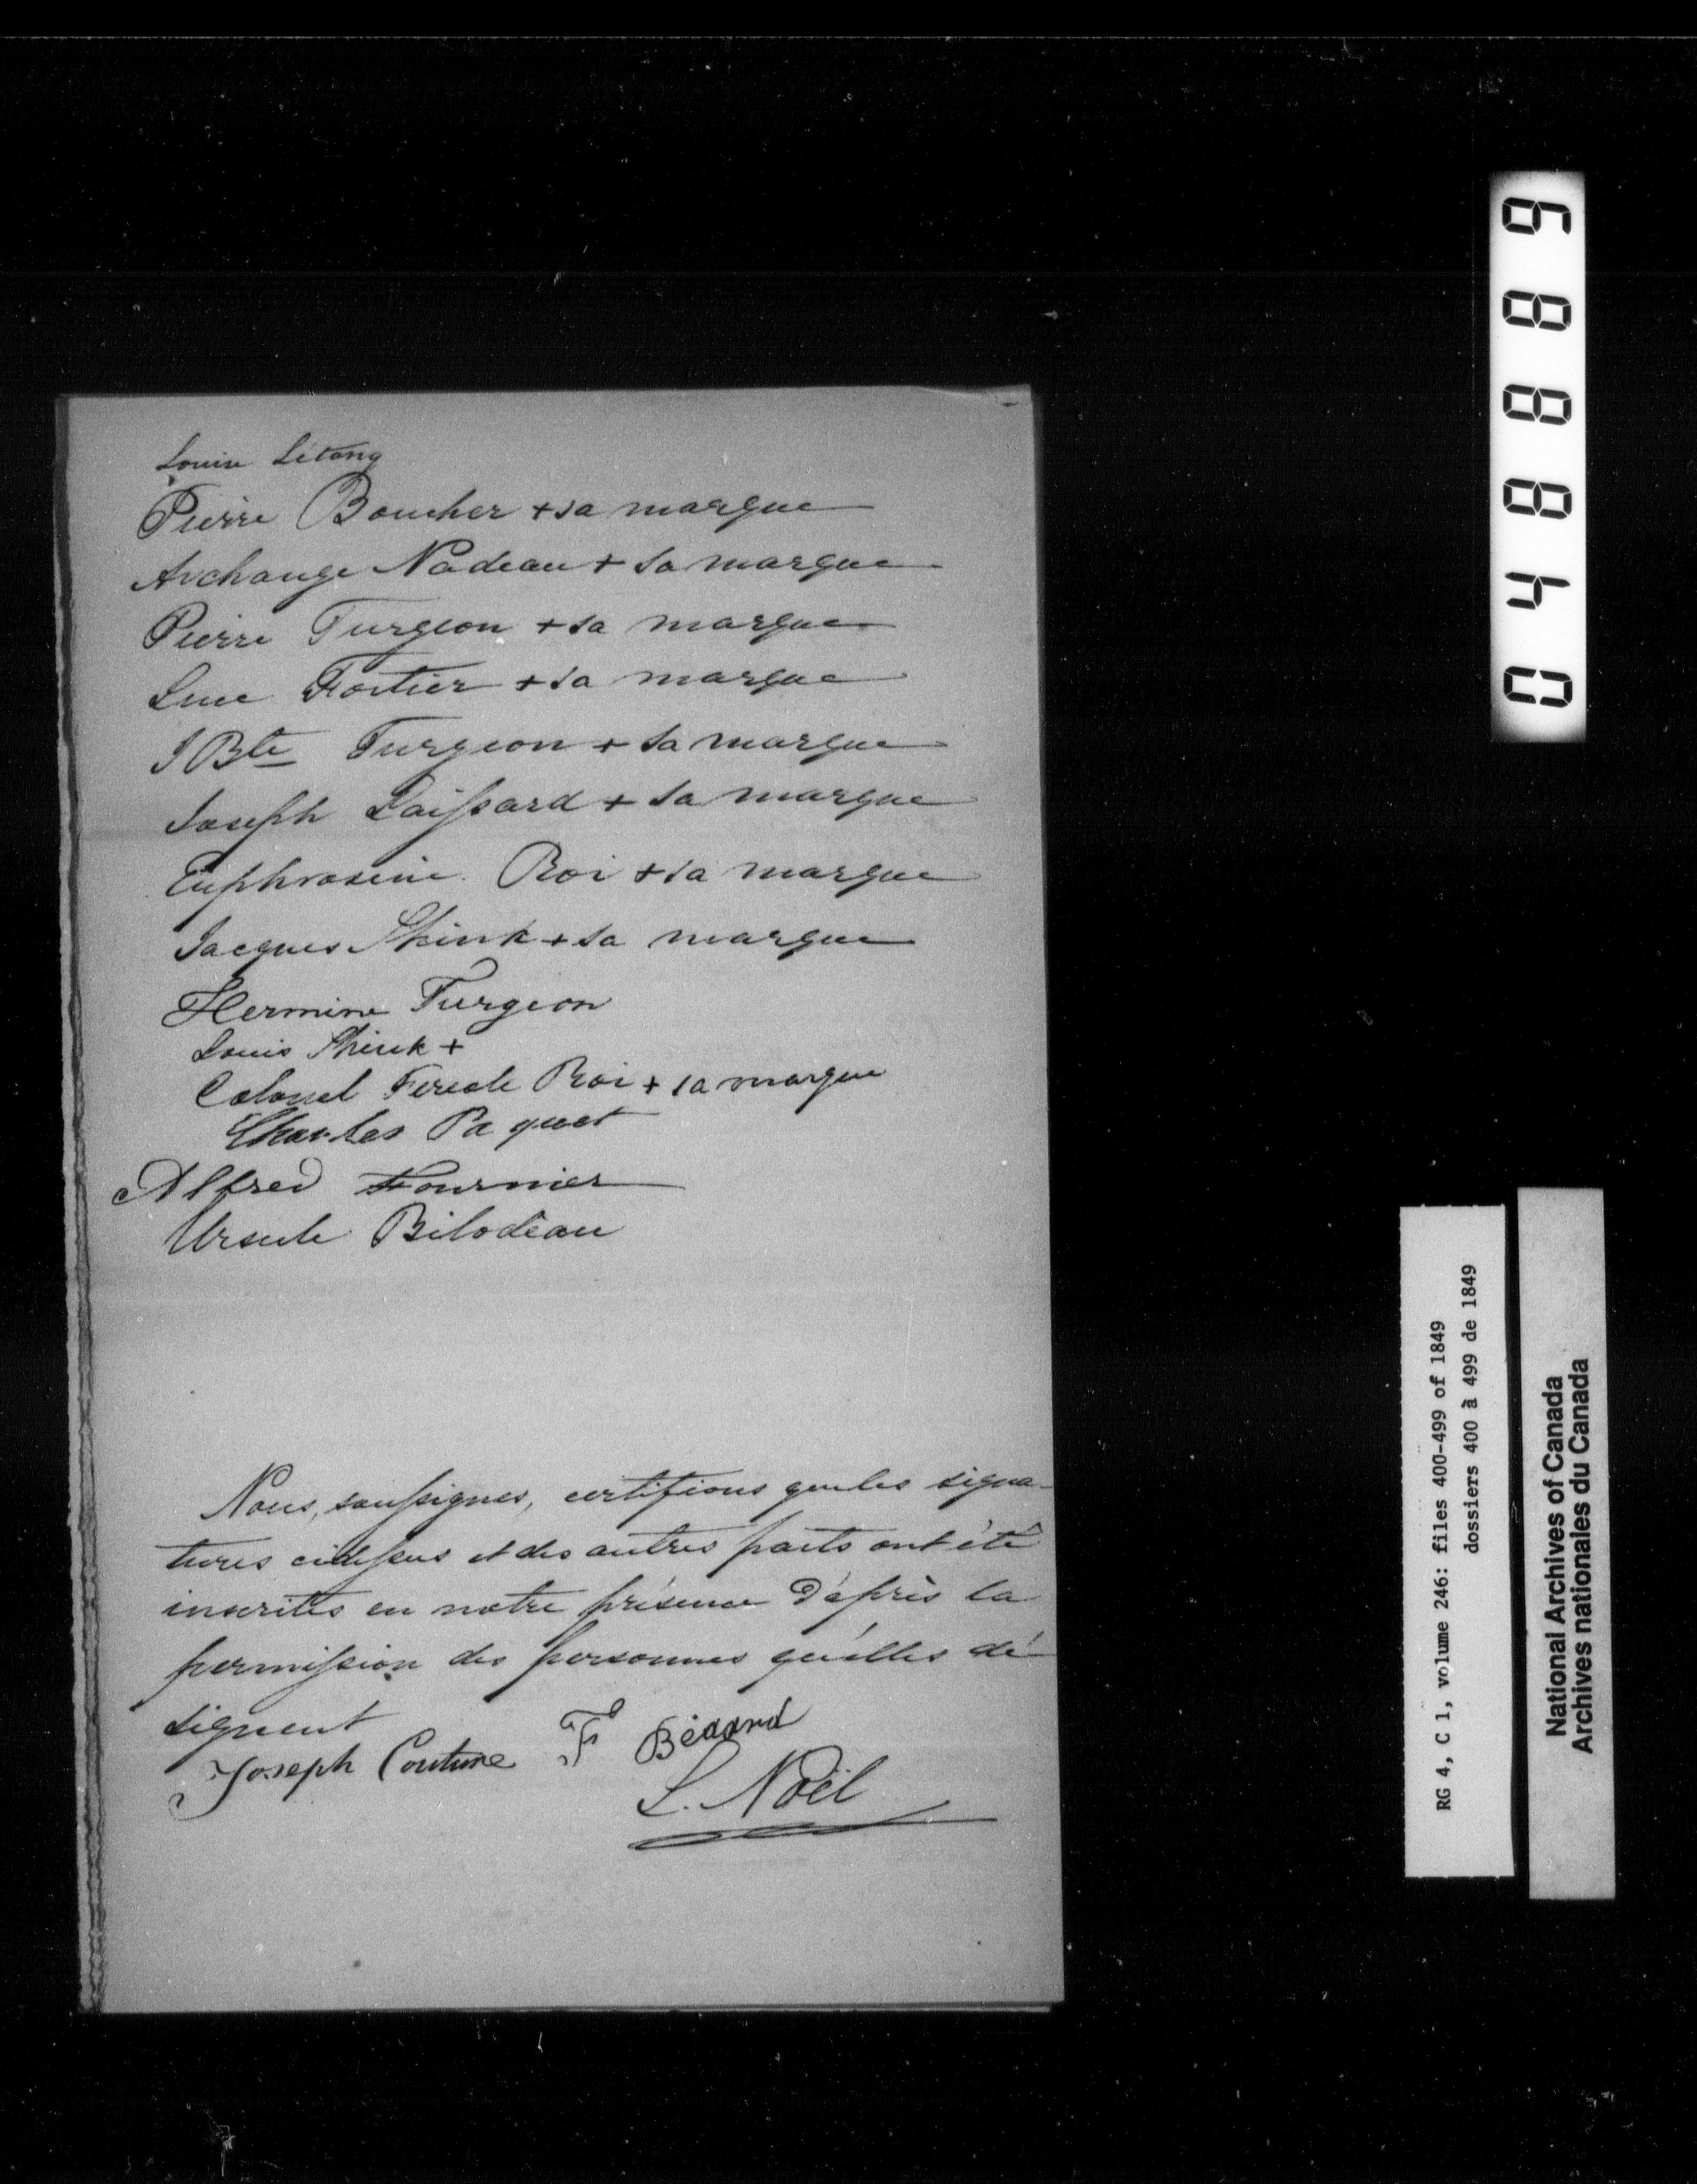 Louise Létang
Pierre Boucher + sa marque
Archange Nadeau + sa marque
Pierre Turgeon + sa marque
Luce Fortier + sa marque
J Bte Turgeon + sa marque
Joseph Laissard + sa marque
Euphrosine Roi + sa marque
Jacques Shink + sa marque
Hermine Turgeon
Louis Shink +
Colonel Roi + sa marque
Charles Paquet
Alfred Fournier
Ursule Bilodeau
Nous, soussignes, certifions que les signa-
tures cidessus et des autres parts ont été
inscrites en notre présence d'après la
permission des personnes qu'elles dé
signent
Joseph Couture F Bédard
L. Noël
048889
RG 4, C 1, volume 246: files 400-499 of 1849
dossiers 400 à 499 de 1849
National Archives of Canada
Archives nationales du Canada